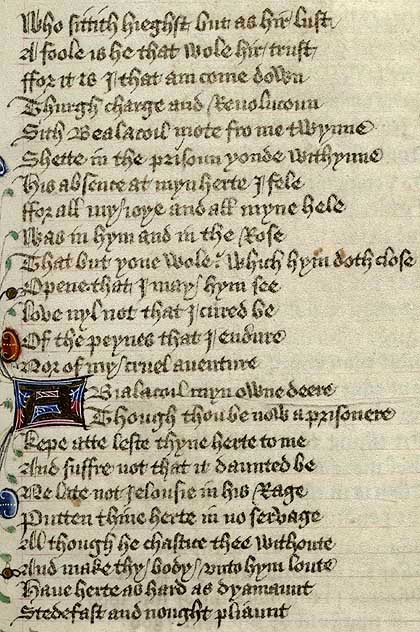 Who sittith hieghst but as hir lust
A foole is he that wole hir trust
ffor it is I that am come down
Thurgh charge and Revolucoun
Sith Bealacoil mote fro me twynne
Shette in the prisoun yonde withynne
His absence at myn herte I fele
ffor all my ioye and all myne hele
Was in hym and in the Rose
That but yone wole Which hym doth close
Opene that I may hym see
Love nyl not that I cured be
Of the peynes that I endure
Nor of my cruel aventure
A Bialacoil myn owne deere
Though thou be now a prisonere
Kepe atte leste thyne herte to me
And suffre not that it daunted be
Ne late not Ielousie in his Rage
Putten thine herte in no servage
Al though he chastice thee withoute
And make thy body vnto hym loute
Have herte as hard as dyamaunt
Stedefast and nought pliaunt